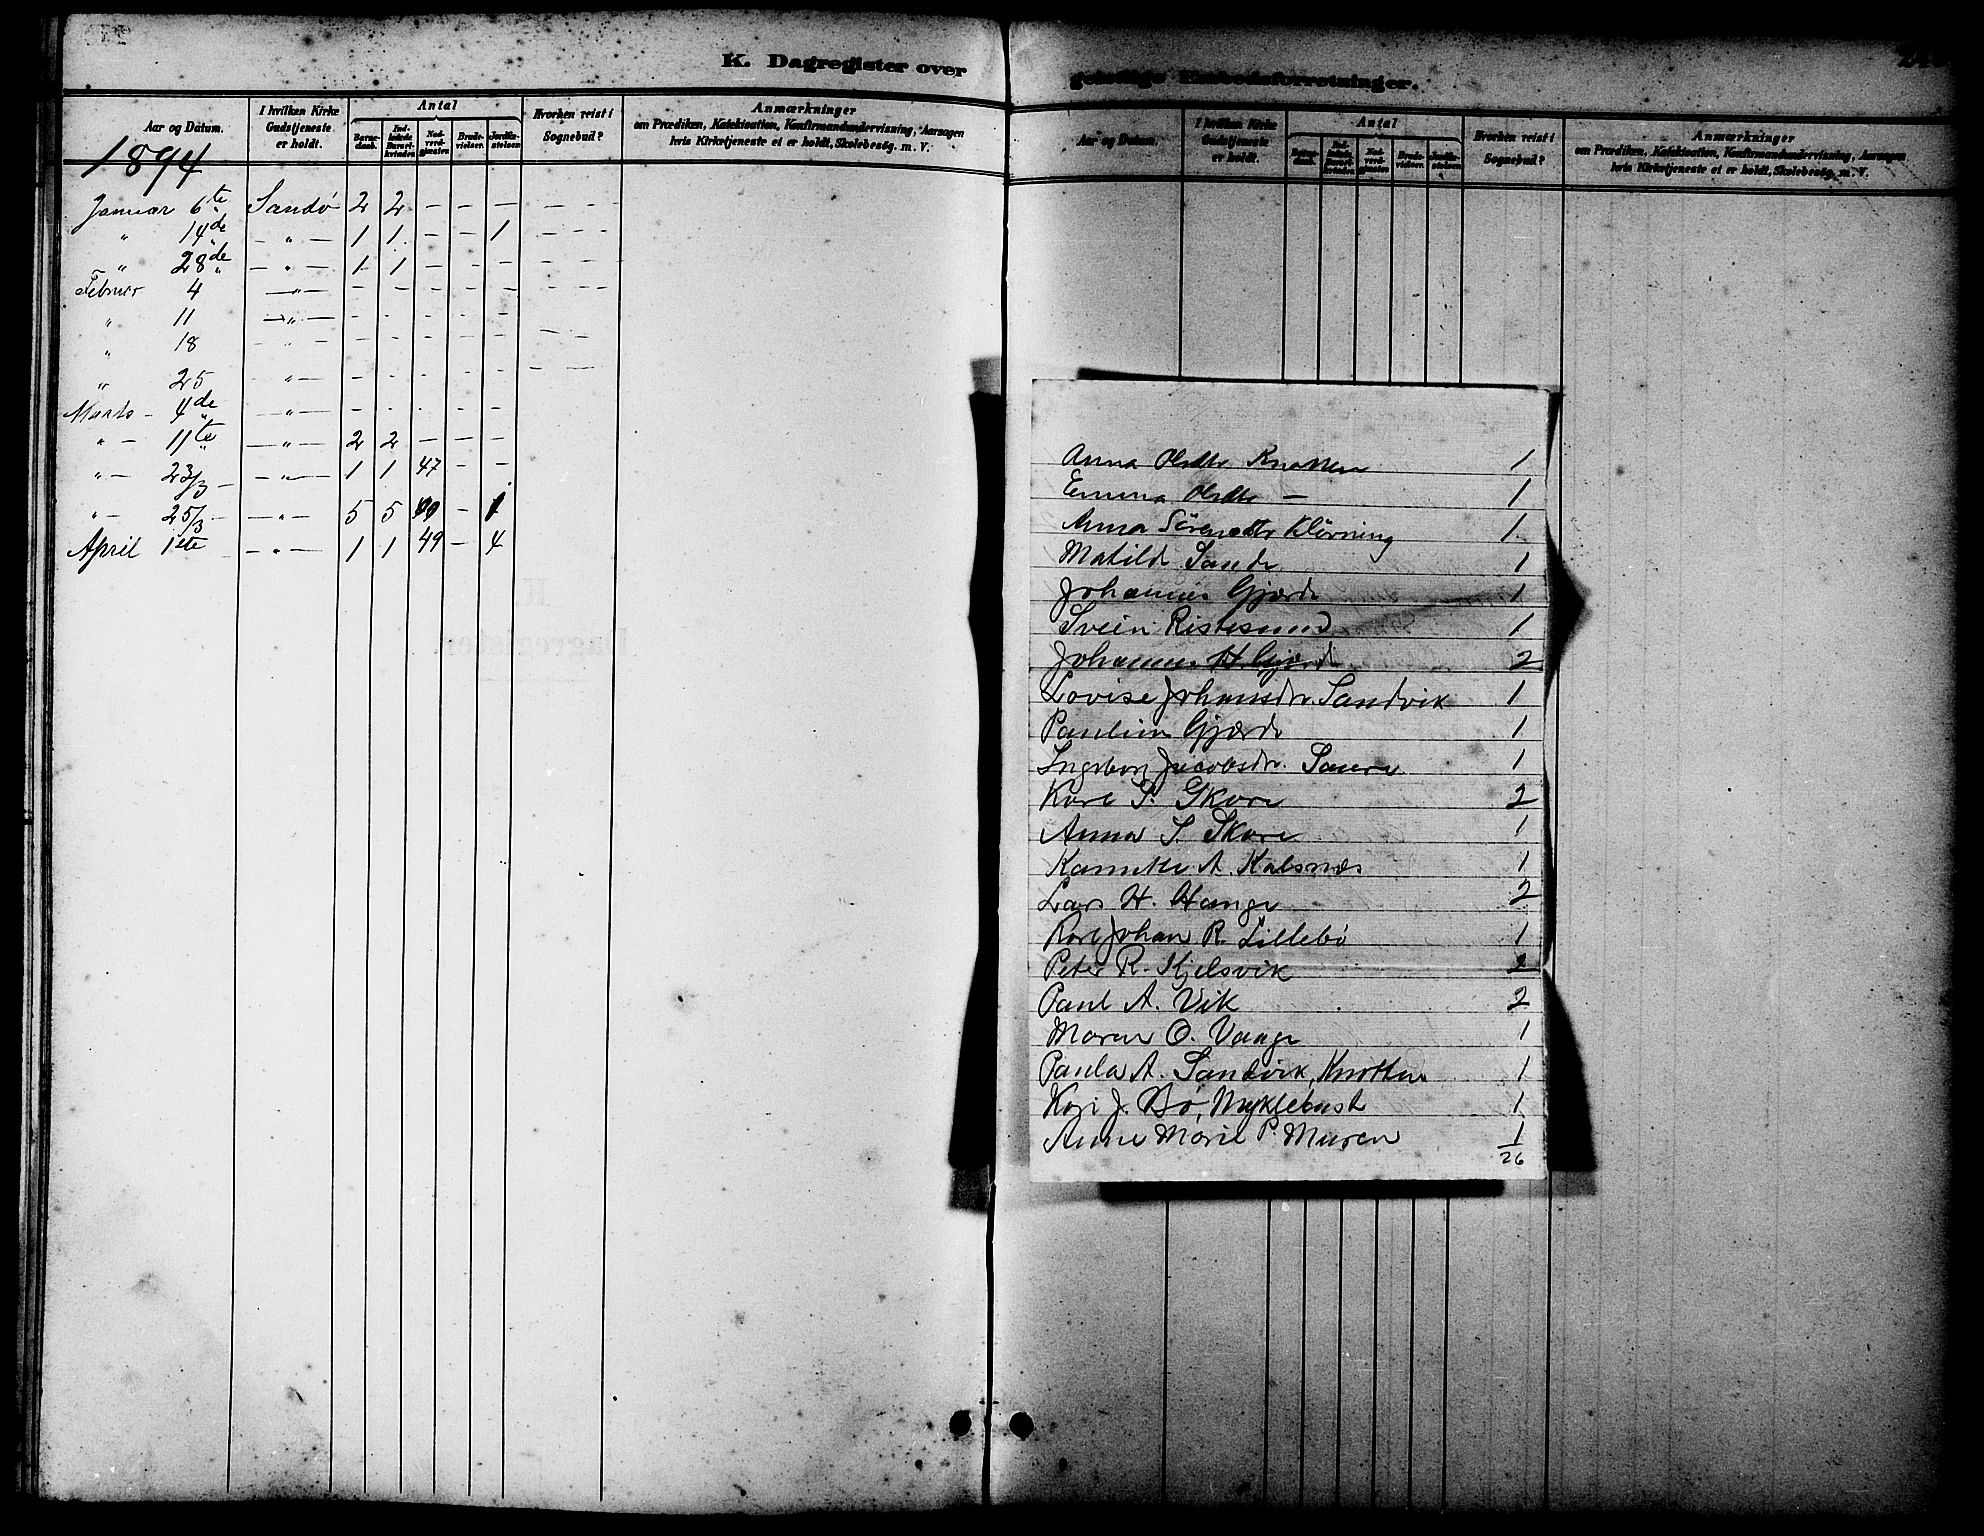 K. Dagregister over
Aar og Datum.
I hvilken Kirke Gudstjeneste er holdt.
Antal
Barne-daab.
Ind-ledede Barsel-kvinder.
Nad-verd-gjæster.
Brude-vielser.
Jordfæ-stelser.
Hvorhen reist i Sognebud?
Anmærkninger
om Prædiken, Katekisation, Konfirmandundervisning, Aarsagen
hvis Kirketjeneste ei er holdt, Skolebesøg. m. V.
1894
Januar 6te Sandø 2 2 — — — — — —
" 14de — " — 1 1 — — 1 — — —
" 28de — " — 1 1 — — — — — —
Februar 4 — " — — — — — — — — —
" 11 — " — — — — — —
" 18 — " — — — — — — — —
" 25 — " — — — — — — — —
Marts — 4de — " — — — — — —
" — 11te — " — 2 2 — — —
" — 23/3 — — " — 1 1 47 — —
" — 25/3 — — " — 5 5 — 1
April 1ste — " — 1 1 49 — 4
geistlige Embedsforretninger.
Aar og Datum.
I hvilken Kirke Gudstjeneste er holdt.
Antal
Barne-daab.
Ind-ledede Barsel-kvinder.
Nad-verd-gjæster.
Brude-vielser.
Jordfæ-stelser.
Hvorhen reist i Sognebud?
Anmærkninger
om Prædiken, Katekisation, Konfirmandundervisning, Aarsagen
hvis Kirketjeneste ei er holdt, Skolebesøg. m. V.
Anna Olsdtr Knotten 1
Emma Olsdtr — 1
Anna Sörensdtr Kløvning 1
Matilde Sande 1
Johannes Gjærde 1
Svein Ristesund 1
Johannes H. Gjærde 2
Lovise Johansdr. Sandvik 1
Pauline Gjærde 1
Ingeborg Jacobsdr. 1
Karl P. Skore 2
Anna S. Skore 1
A. Kalsnæs 1
Lars H. Hauge 2
Karl Johan R. Lillebö 1
Peter R. Kjelsvik 2
Paul A. Vik 2
Maren O. Vaage 1
Paula A. Sandvik, Knotten 1
Kari J. Bö, Myklebust 1
Anne Marie P. Muren 1
26
K.
Dagregister